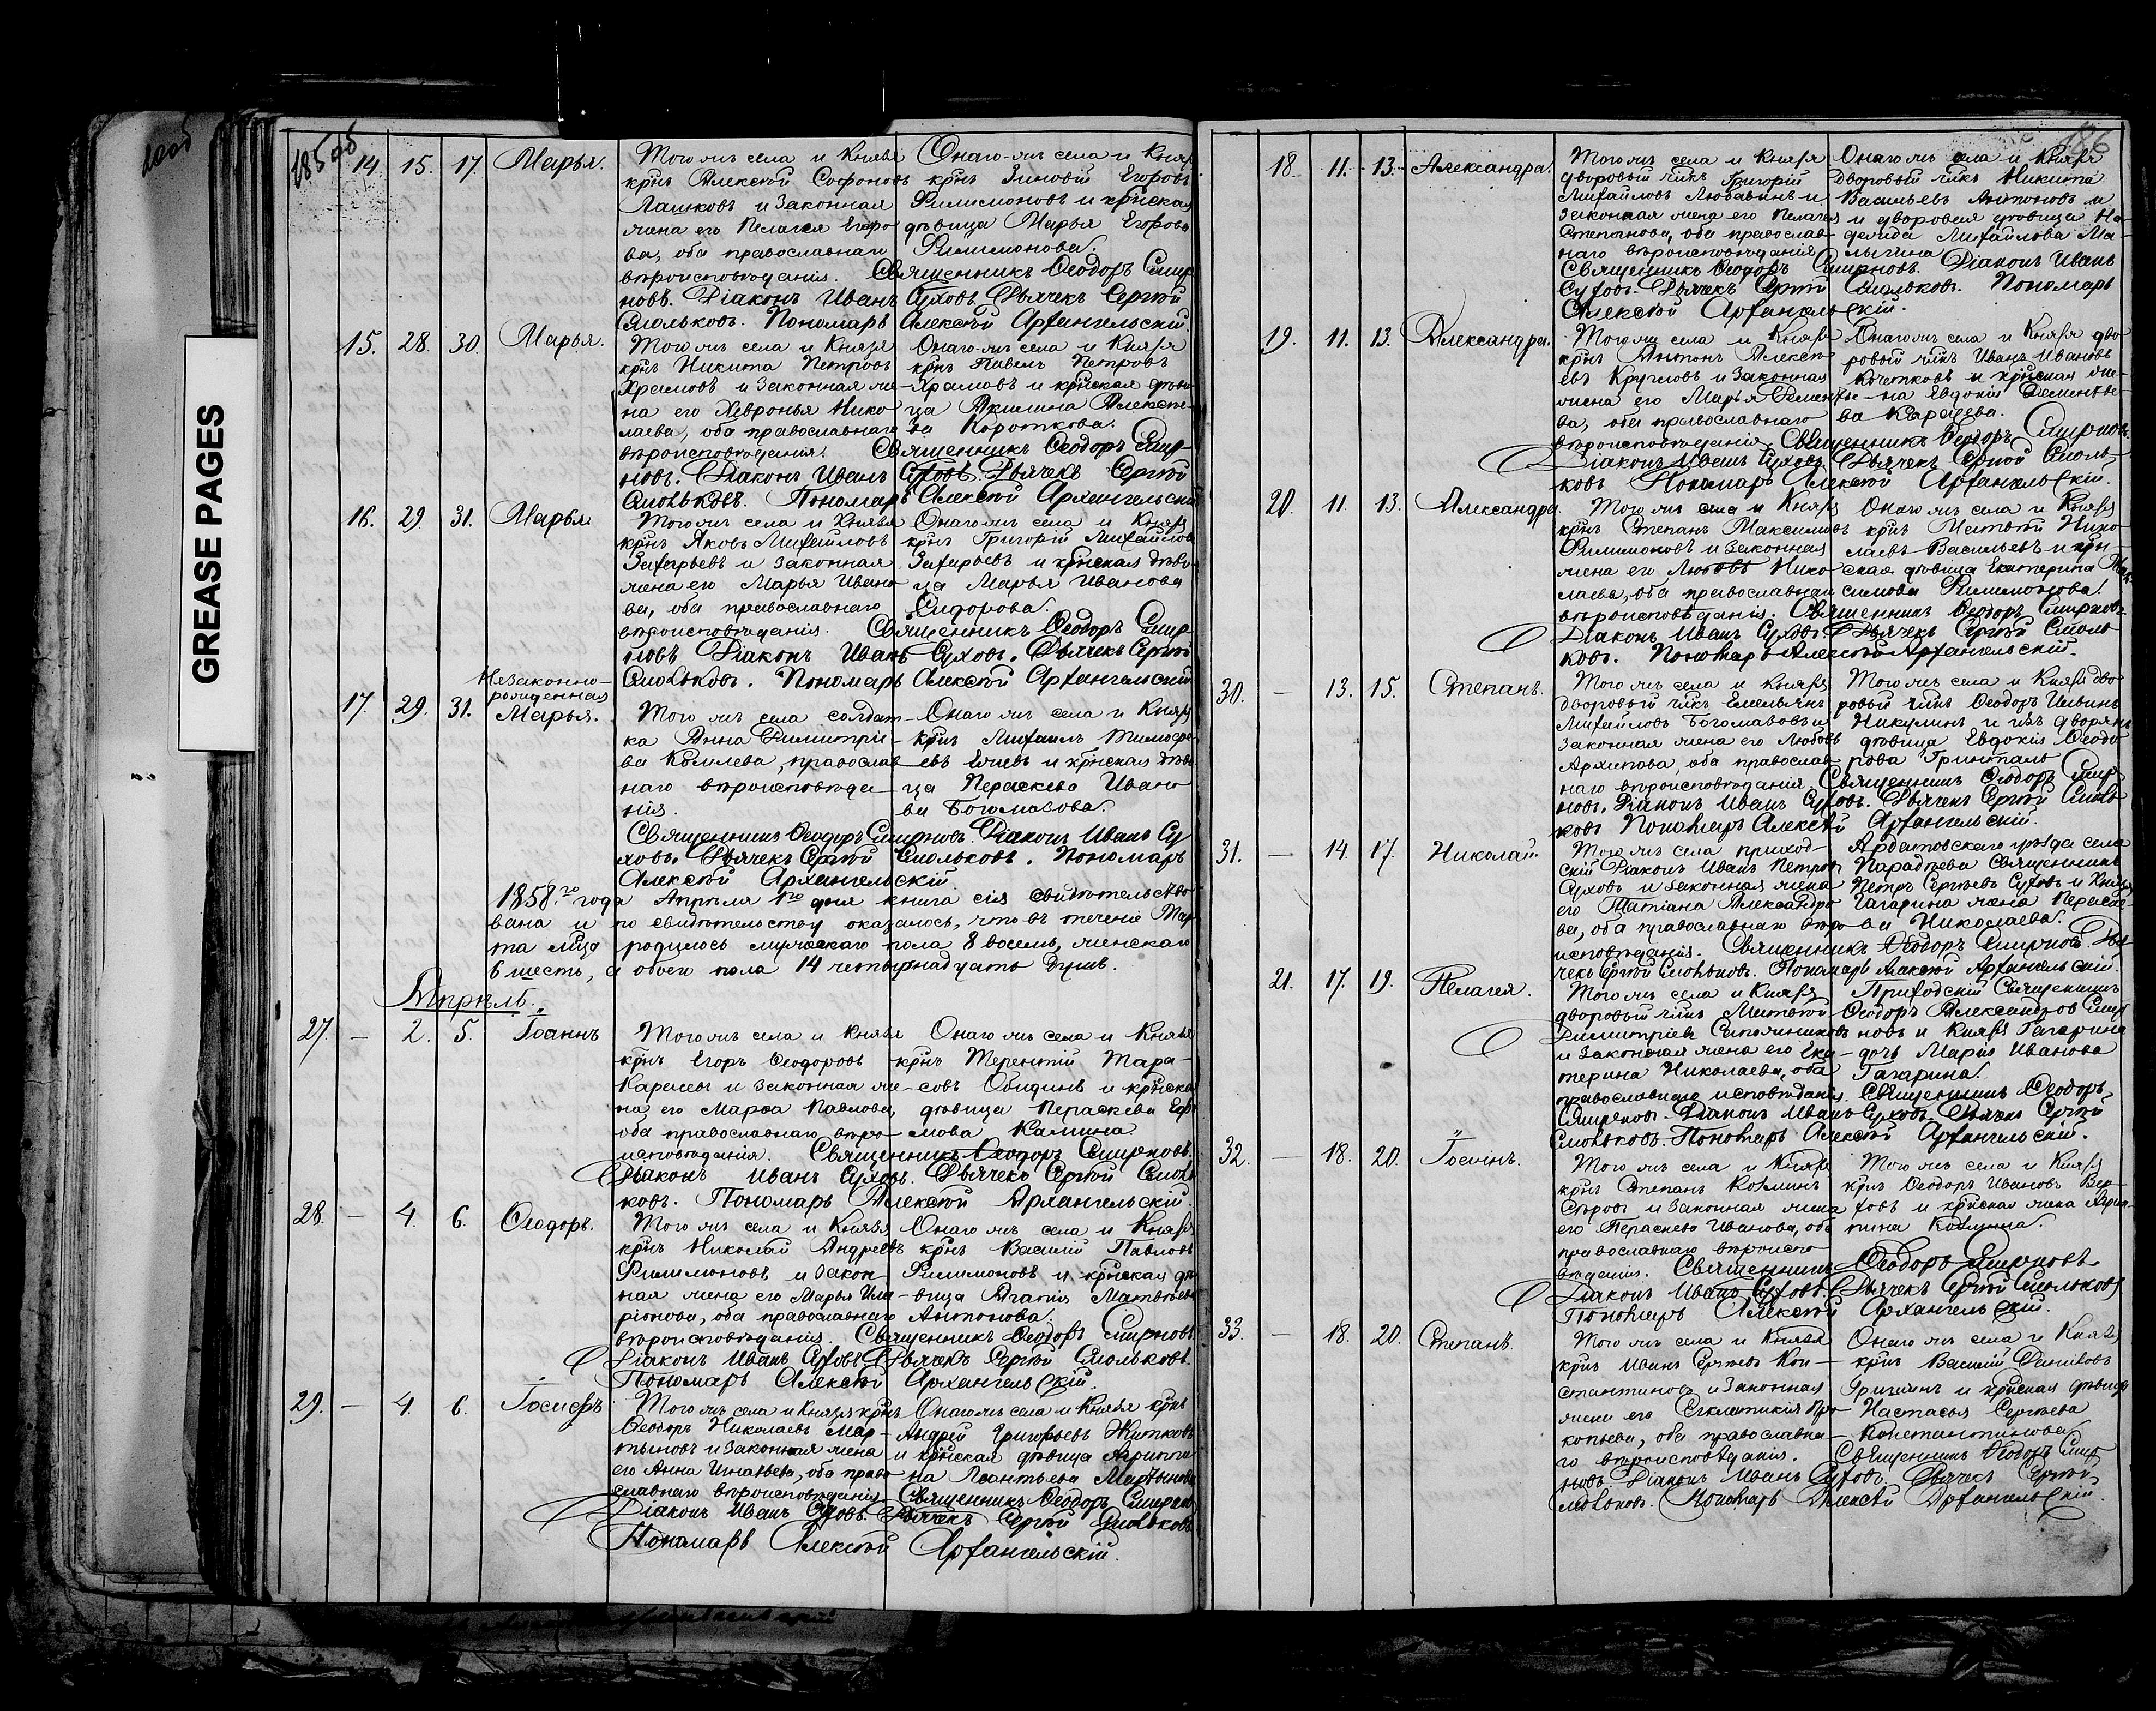 GREASE PAGES
185
14. 15. 17. Марья.
Того жъ села и Князя
крнъ Алексѣй Софоновъ
Лашковъ и законная
жена его Пелагея Егоро
ва, оба православнаго
вѣроисповѣданія.
Онаго-жъ села и Князя
крнъ Зиновій Егоровъ
Филимоновъ и крнская
дѣвица Марья Егорова
Филимонова.
Священникъ Ѳеодоръ Смир
новъ. Діаконъ Иванъ Суховъ. Дьячекъ Сергѣй
Смольковъ. Пономарь Алексѣй Архангельскій.
15. 28. 30. Марья.
Того жъ села и Князя
крнъ Никита Петровъ
Храмовъ и законная же-
на его Хевронья Нико
лаева, оба православнаго
вѣроисповѣданія.
Онаго-жъ села и Князя
крнъ Павелъ Петровъ
Храмовъ и крнская дѣви-
ца Акилина Алексѣе-
ва Короткова.
Священникъ Ѳеодоръ Смир-
новъ. Діаконъ Иванъ Суховъ. Дьячекъ Сергѣй
Смольковъ. Пономарь Алексѣй Архангельскій
16. 29. 31. Марья
Того жъ села и Князя
крнъ Яковъ Михайловъ
Захарьевъ и законная
жена его Марья Ивано
ва, оба православнаго
вѣроисповѣданія.
Онаго жъ села и Князя
крнъ Григорій Михайловъ
Захарьевъ и крнская дѣви-
ца Марья Иванова
Сидорова.
Священникъ Ѳеодоръ Смир-
новъ Діаконъ Иванъ Суховъ. Дьячекъ Сергѣй
Смольковъ. Пономарь Алексѣй Архангельскій
Незаконно-
рожденная
17. 29. 31. Марья.
Того жъ села солдат-
ка Анна Димитріе-
ва Комлева, православ
наго вѣроисповѣда
нія.
Онаго жъ села и Князя
крнъ Михаилъ Тимофе-
евъ и крнская дѣви
ца Параскева Ивано
ва Богомазова.
Священникъ Ѳеодоръ Смирновъ. Діаконъ Иванъ Су
ховъ. Дьячекъ Сергѣй Смольковъ. Пономарь
Алексѣй Архангельскій
1858го года Апрѣля 1го дня книга сія свидѣтельство
вана и по свидѣтельству оказалось, что въ теченіе Мар
та мца родилось мужескаго пола 8 восемь, женскаго
6 шесть, а обоего пола 14 четырнадцать душъ.
Апрѣль.
27. — 2. 5. Іоаннъ
Того жъ села и Князя
крнъ Егоръ Ѳеодоровъ
Карасевъ и законная же-
на его Марѳа Павлова,
оба православнаго вѣро-
исповѣданія.
Онаго жъ села и Князя
крнъ Терентій Тара-
совъ Обидинъ и крнская
дѣвица Параскева Ефи
мова Калинина.
Священникъ Ѳеодоръ Смирновъ.
Діаконъ Иванъ Суховъ. Дьячекъ Сергѣй Смоль
ковъ. Пономарь Алексѣй Архангельскій.
28. — 4. 6. Ѳеодоръ.
Того жъ села и Князя
крнъ Николай Андреевъ
Филимоновъ и закон
ная жена его Марья Ила-
ріонова, оба православнаго
вѣроисповѣданія.
Онаго жъ села и Князя
крнъ Василій Павловъ
Филимоновъ и крнская дѣ
вица Агапія Матвѣева
Антонова.
Священникъ Ѳеодоръ Смирновъ
Діаконъ Иванъ Суховъ. Дьячекъ Сергѣй Смольковъ.
Пономарь Алексѣй Архангельскій.
29. — 4. 6. Іосифъ
Того жъ села и Князя крнъ
Ѳеодоръ Николаевъ Мар-
тыновъ и законная жена
его Анна Игнатьева, оба право
славнаго вѣроисповѣданія
Онаго жъ села и Князя крнъ
Андрей Григорьевъ Житковъ
и крнская дѣвица Агрипи
на Леонтьева Мартынова
Священникъ Ѳеодоръ Смирновъ
Діаконъ Иванъ Суховъ. Дьячекъ Сергѣй Смольковъ
Пономарь Алексѣй Архангельскій.
186
18. 11. 13. Александра.
Того жъ села и Князя
дворовый чнкъ Григорій
Михайловъ Любавинъ и
законная жена его Пелагея
Степанова, оба православ-
наго вѣроисповѣданія
Онаго жъ села и Князя
дворовый чнкъ Никита
Васильевъ Антоновъ и
и дворовая дѣвица На-
дежда Михайлова Ма-
лыгина
Священникъ Ѳеодоръ Смирновъ. Діаконъ Иванъ
Суховъ. Дьячекъ Сергѣй Смольковъ. Пономарь
Алексѣй Архангельскій.
19. 11. 13. Александра.
Того жъ села и Князя
крнъ Антонъ Алексѣ
евъ Кругловъ и законная
жена его Марья Дементье-
ва, оба православнаго
вѣроисповѣданія.
Онаго жъ села и Князя дво
ровый чнкъ Иванъ Ивановъ
Кочетковъ и крнская же-
на Евдокія Дементье-
ва Карасева.
Священникъ Ѳеодоръ Смирновъ.
Діаконъ Иванъ Суховъ. Дьячекъ Сергѣй Смоль-
ковъ Пономарь Алексѣй Архангельскій.
20. 11. 13. Александра.
Того жъ села и Князя
крнъ Степанъ Максимовъ
Филимоновъ и законная
жена его Любовь Нико
лаева, оба православнаго
вѣроисповѣданія.
Онаго жъ села и Князя
крнъ Матвѣй Нико-
лаевъ Васильевъ и крн-
ская дѣвица Екатерина Мак-
симова Филимонова.
Священникъ Ѳеодоръ Смирновъ.
Діаконъ Иванъ Суховъ. Дьячекъ Сергѣй Смоль
ковъ. Пономарь Алексѣй Архангельскій.
30. — 13. 15. Степанъ.
Того жъ села и Князя
дворовый чнкъ Емельянъ
Михайловъ Богомазовъ и
законная жена его Любовь
Архипова, оба православ
наго вѣроисповѣданія.
Того жъ села и Князя дво
ровый чнкъ Ѳеодоръ Ильинъ
Никулинъ и изъ дворянъ
дѣвица Евдокія Ѳеодо
рова Гринталь
Священникъ Ѳеодоръ Смир
новъ. Діаконъ Иванъ Суховъ. Дьячекъ Сергѣй Смоль
ковъ Пономарь Алексѣй Архангельскій.
31. — 14. 17. Николай.
Того жъ села приход-
скій Діаконъ Иванъ Петровъ
Суховъ и законная жена
его Татіана Александро
ва, оба православнаго вѣро
исповѣданія.
Ардатовскаго уѣзда села
Парадѣева священникъ
Петръ Сергѣевъ Суховъ и Князя
Гагарина жена Параске-
ва Николаева.
Священникъ Ѳеодоръ Смирновъ. Дья
чекъ Сергѣй Смольковъ. Пономарь Алексѣй Архангельскій.
21. 17. 19. Пелагея.
Того жъ села и Князя
дворовый чнкъ Матвѣй
Димитріевъ Сапожниковъ
и законная жена его Ека-
терина Николаева, оба
православнаго исповѣданія.
Приходскій Священникъ
Ѳеодоръ Александровъ Смир
новъ и Князя Гагарина
дочь Марія Иванова
Гагарина.
Священникъ Ѳеодоръ
Смирновъ. Діаконъ Иванъ Суховъ. Дьячекъ Сергѣй
Смольковъ. Пономарь Алексѣй Архангельскій.
32. — 18. 20. Іоаннъ.
Того жъ села и Князя
крнъ Степанъ Козминъ
и законная жена
его Параскева Иванова, оба
православнаго вѣроиспо
вѣданія.
Того жъ села и Князя
крнъ Ѳеодоръ Ивановъ Вер-
ховъ и крнская жена Агри-
пина Козмина.
Священникъ Ѳеодоръ Смирновъ
Діаконъ Иванъ Суховъ. Дьячекъ Сергѣй Смольковъ
Пономарь Алексѣй Архангельскій.
33. — 18. 20. Степанъ.
Того жъ села и Князя
крнъ Иванъ Сергѣевъ Кон-
стантиновъ и законная
жена его Секлитикія Про
копьева, оба православна-
го вѣроисповѣданія.
Онаго жъ села и Князя
крнъ Василій
Гришинъ и крнская дѣвица
Настасья Сергѣева
Константинова
Священникъ Ѳеодоръ Смир
новъ. Діаконъ Иванъ Суховъ. Дьячекъ Сергѣй
Смольковъ. Пономарь Алексѣй Архангельскій.